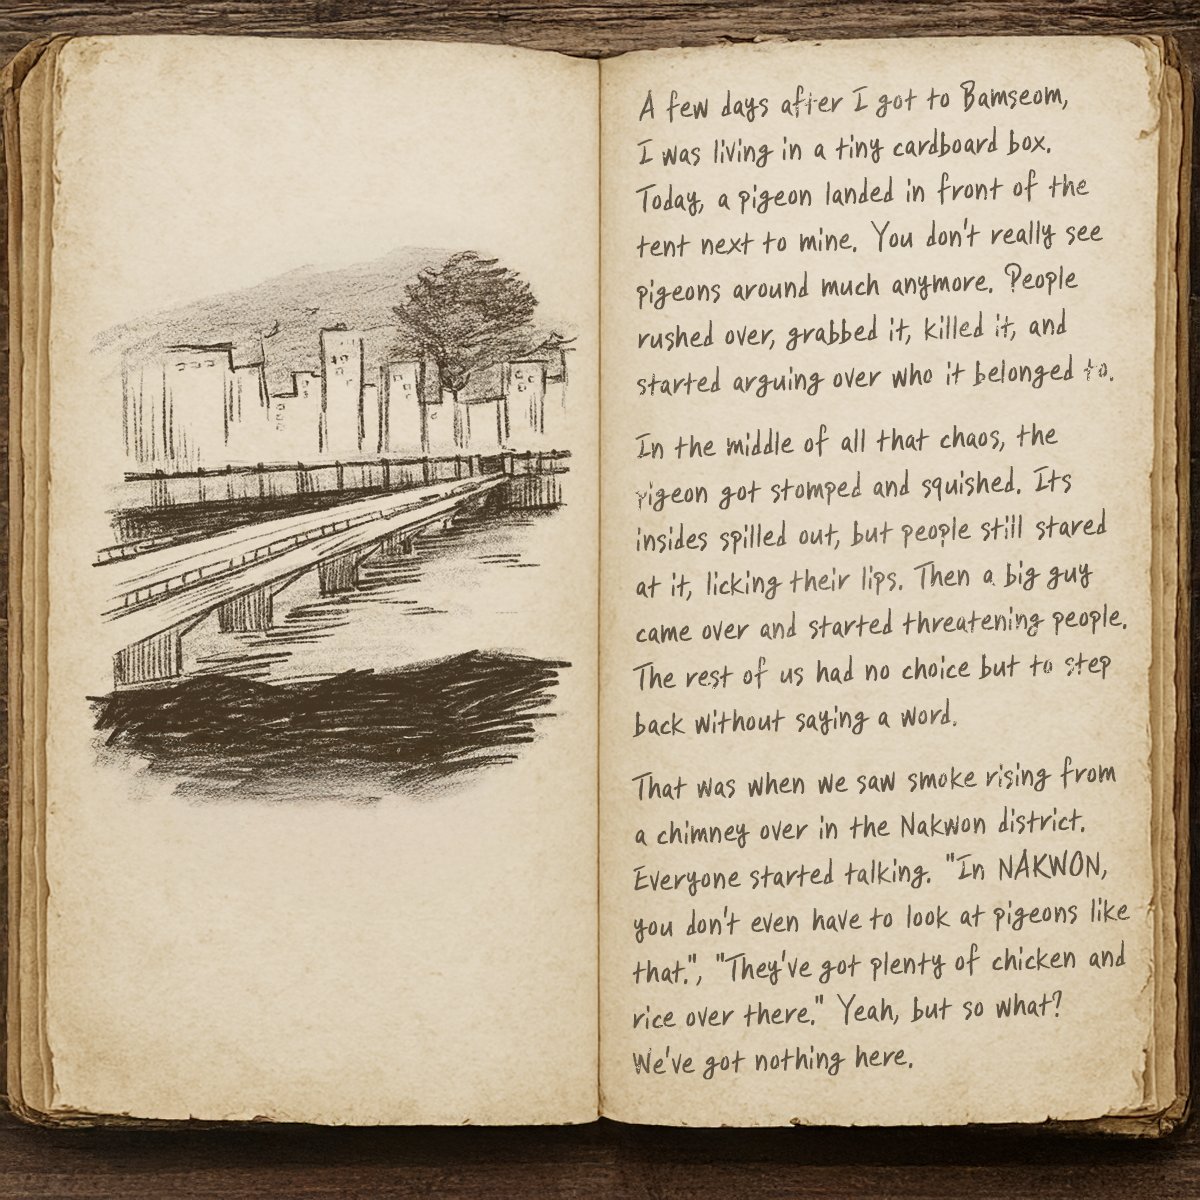 A few days after I got to Bamseom,
I was living in a tiny cardboard box.
Today, a pigeon landed in front of the
tent next to mine. You don't really see
pigeons around much anymore. People
rushed over, grabbed it, killed it, and
started arguing over who it belonged to.
In the middle of all that chaos, the
pigeon got stomped and squished. Its
insides spilled out, but people still stared
at it, licking their lips. Then a big guy
came over and started threatening people.
The rest of us had no choice but to step
back without saying a word.
That was when we saw smoke rising from
a chimney over in the Nakwon district.
Everyone started talking. "In NAKWON,
you don't even have to look at pigeons like
that.", "They've got plenty of chicken and
rice over there." Yeah, but so what?
We've got nothing here.